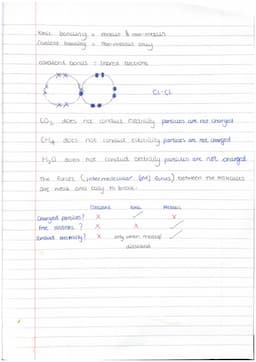 Ionic bonding = metals & non-metals
Covalent bonding = non-metals only
covalent bonds = shared electrons
Cl-Cl
CO₂ does not conduct electricity particles are not charged
CH₄ does not conduct electricity particles are not charged
H₂O does not conduct electricity particles are not charged
The forces (intermolecular forces) between the molecules
are weak and easy to break.
Metals
Charged particles? X ✓ X
Free electrons? X X ✓
Conduct electricity? X only when molten/ ✓
dissolved